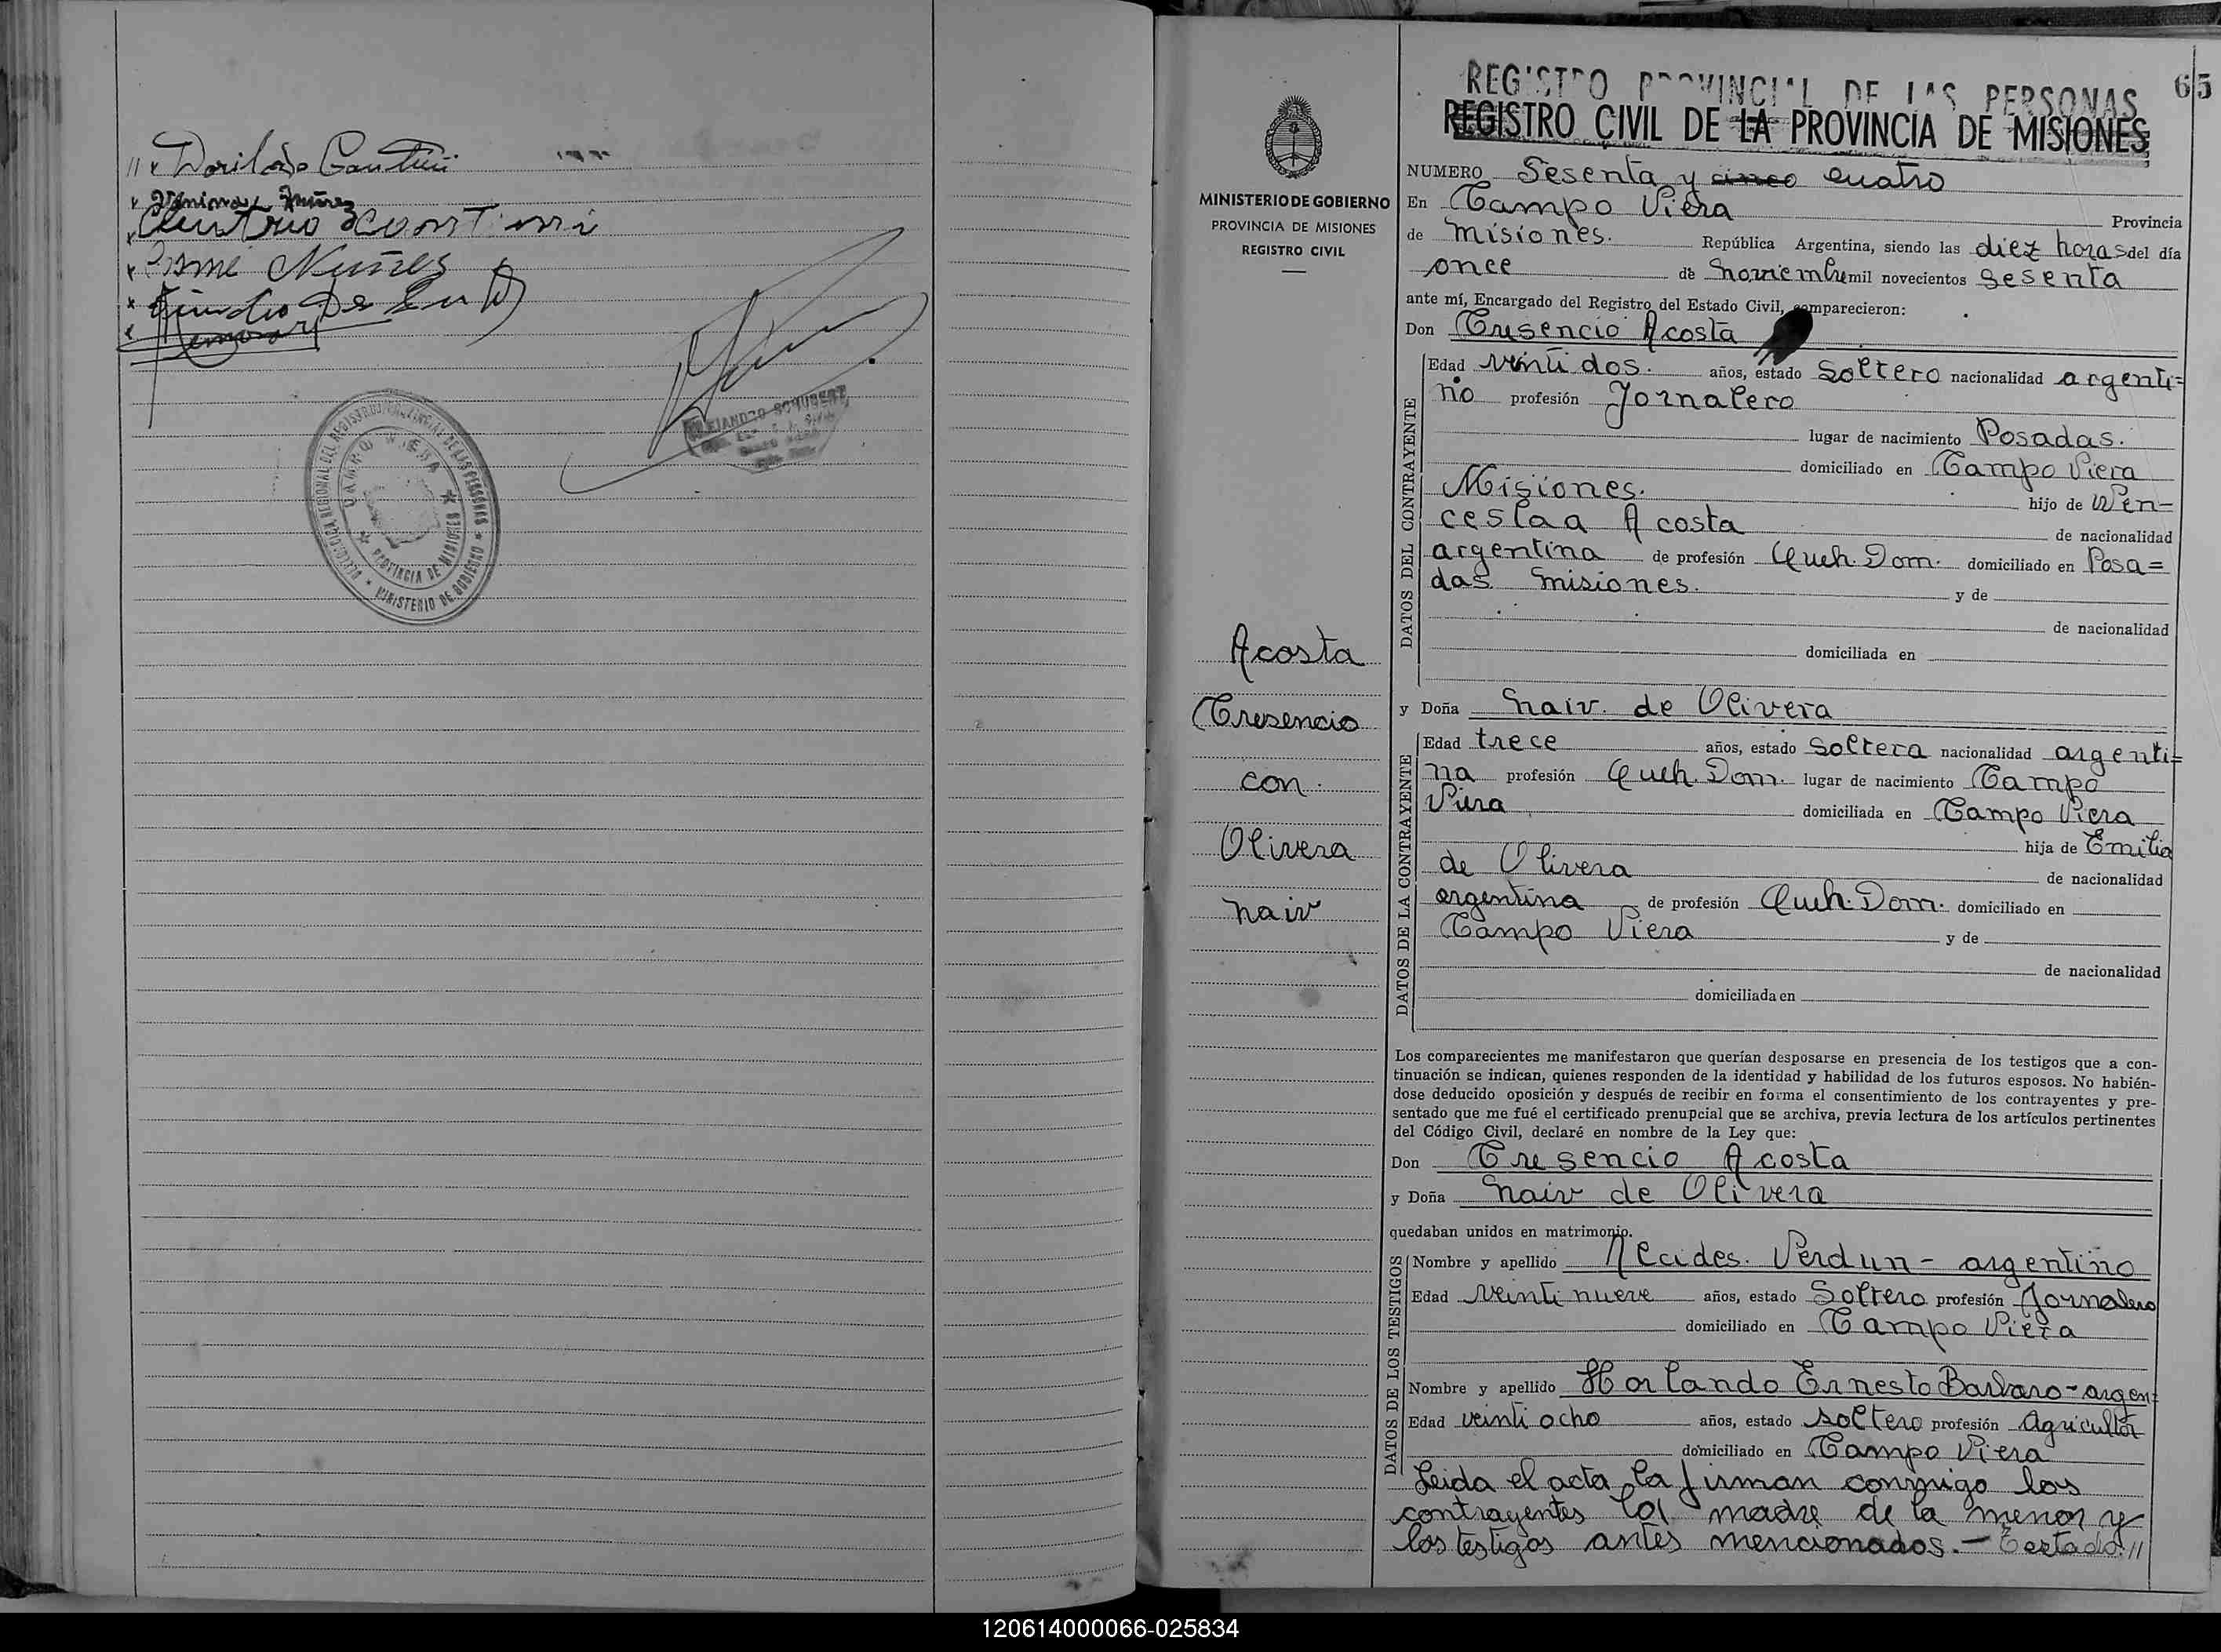 Dorildo
Nuñez
Nuñez
ALEJANDRO SCHUBERT
CAMPO VIERA
PROVINCIA DE MISIONES
MINISTERIO DE GOBIERNO
65
REGISTRO PROVINCIAL DE LAS PERSONAS
REGISTRO CIVIL DE LA PROVINCIA DE MISIONES
MINISTERIO DE GOBIERNO
PROVINCIA DE MISIONES
REGISTRO CIVIL
Acosta
Cresencio
con
Olivera
Naiv
NUMERO Sesenta y cinco cuatro
En Campo Viera Provincia
de Misiones. República Argentina, siendo las diez horas del día
once de Noviembre mil novecientos sesenta
ante mí, Encargado del Registro del Estado Civil, comparecieron:
Don Cresencio Acosta
DATOS DEL CONTRAYENTE
Edad veinti dos. años, estado soltero nacionalidad argenti=
no profesión Jornalero
lugar de nacimiento Posadas.
domiciliado en Campo Viera
Misiones. hijo de Wen=
ceslaa Acosta de nacionalidad
argentina de profesión Queh. Dom. domiciliado en Posa=
das Misiones. y de
de nacionalidad
domiciliada en
y Doña Naiv. de Olivera
DATOS DE LA CONTRAYENTE
Edad trece años, estado soltera nacionalidad argenti=
na profesión Queh. Dom. lugar de nacimiento Campo
Viera domiciliada en Campo Viera
hija de Emilia
de Olivera de nacionalidad
argentina de profesión Queh. Dom. domiciliado en
Campo Viera y de
de nacionalidad
domiciliada en
Los comparecientes me manifestaron que querían desposarse en presencia de los testigos que a con-
tinuación se indican, quienes responden de la identidad y habilidad de los futuros esposos. No habién-
dose deducido oposición y después de recibir en forma el consentimiento de los contrayentes y pre-
sentado que me fué el certificado prenupcial que se archiva, previa lectura de los artículos pertinentes
del Código Civil, declaré en nombre de la Ley que:
Don Cresencio Acosta
y Doña Naiv de Olivera
quedaban unidos en matrimonio.
DATOS DE LOS TESTIGOS
Nombre y apellido Alcides. Verdun - argentino
Edad veinti nueve años, estado Soltero profesión Jornalero
domiciliado en Campo Viera
Nombre y apellido Horlando Ernesto Barbaro - argen=
Edad veinti ocho años, estado soltero profesión Agricultor
domiciliado en Campo Viera
Leida el acta la firman conmigo los
contrayentes la madre de la menor y
los testigos antes mencionados. - Testado: //
120614000066-025834